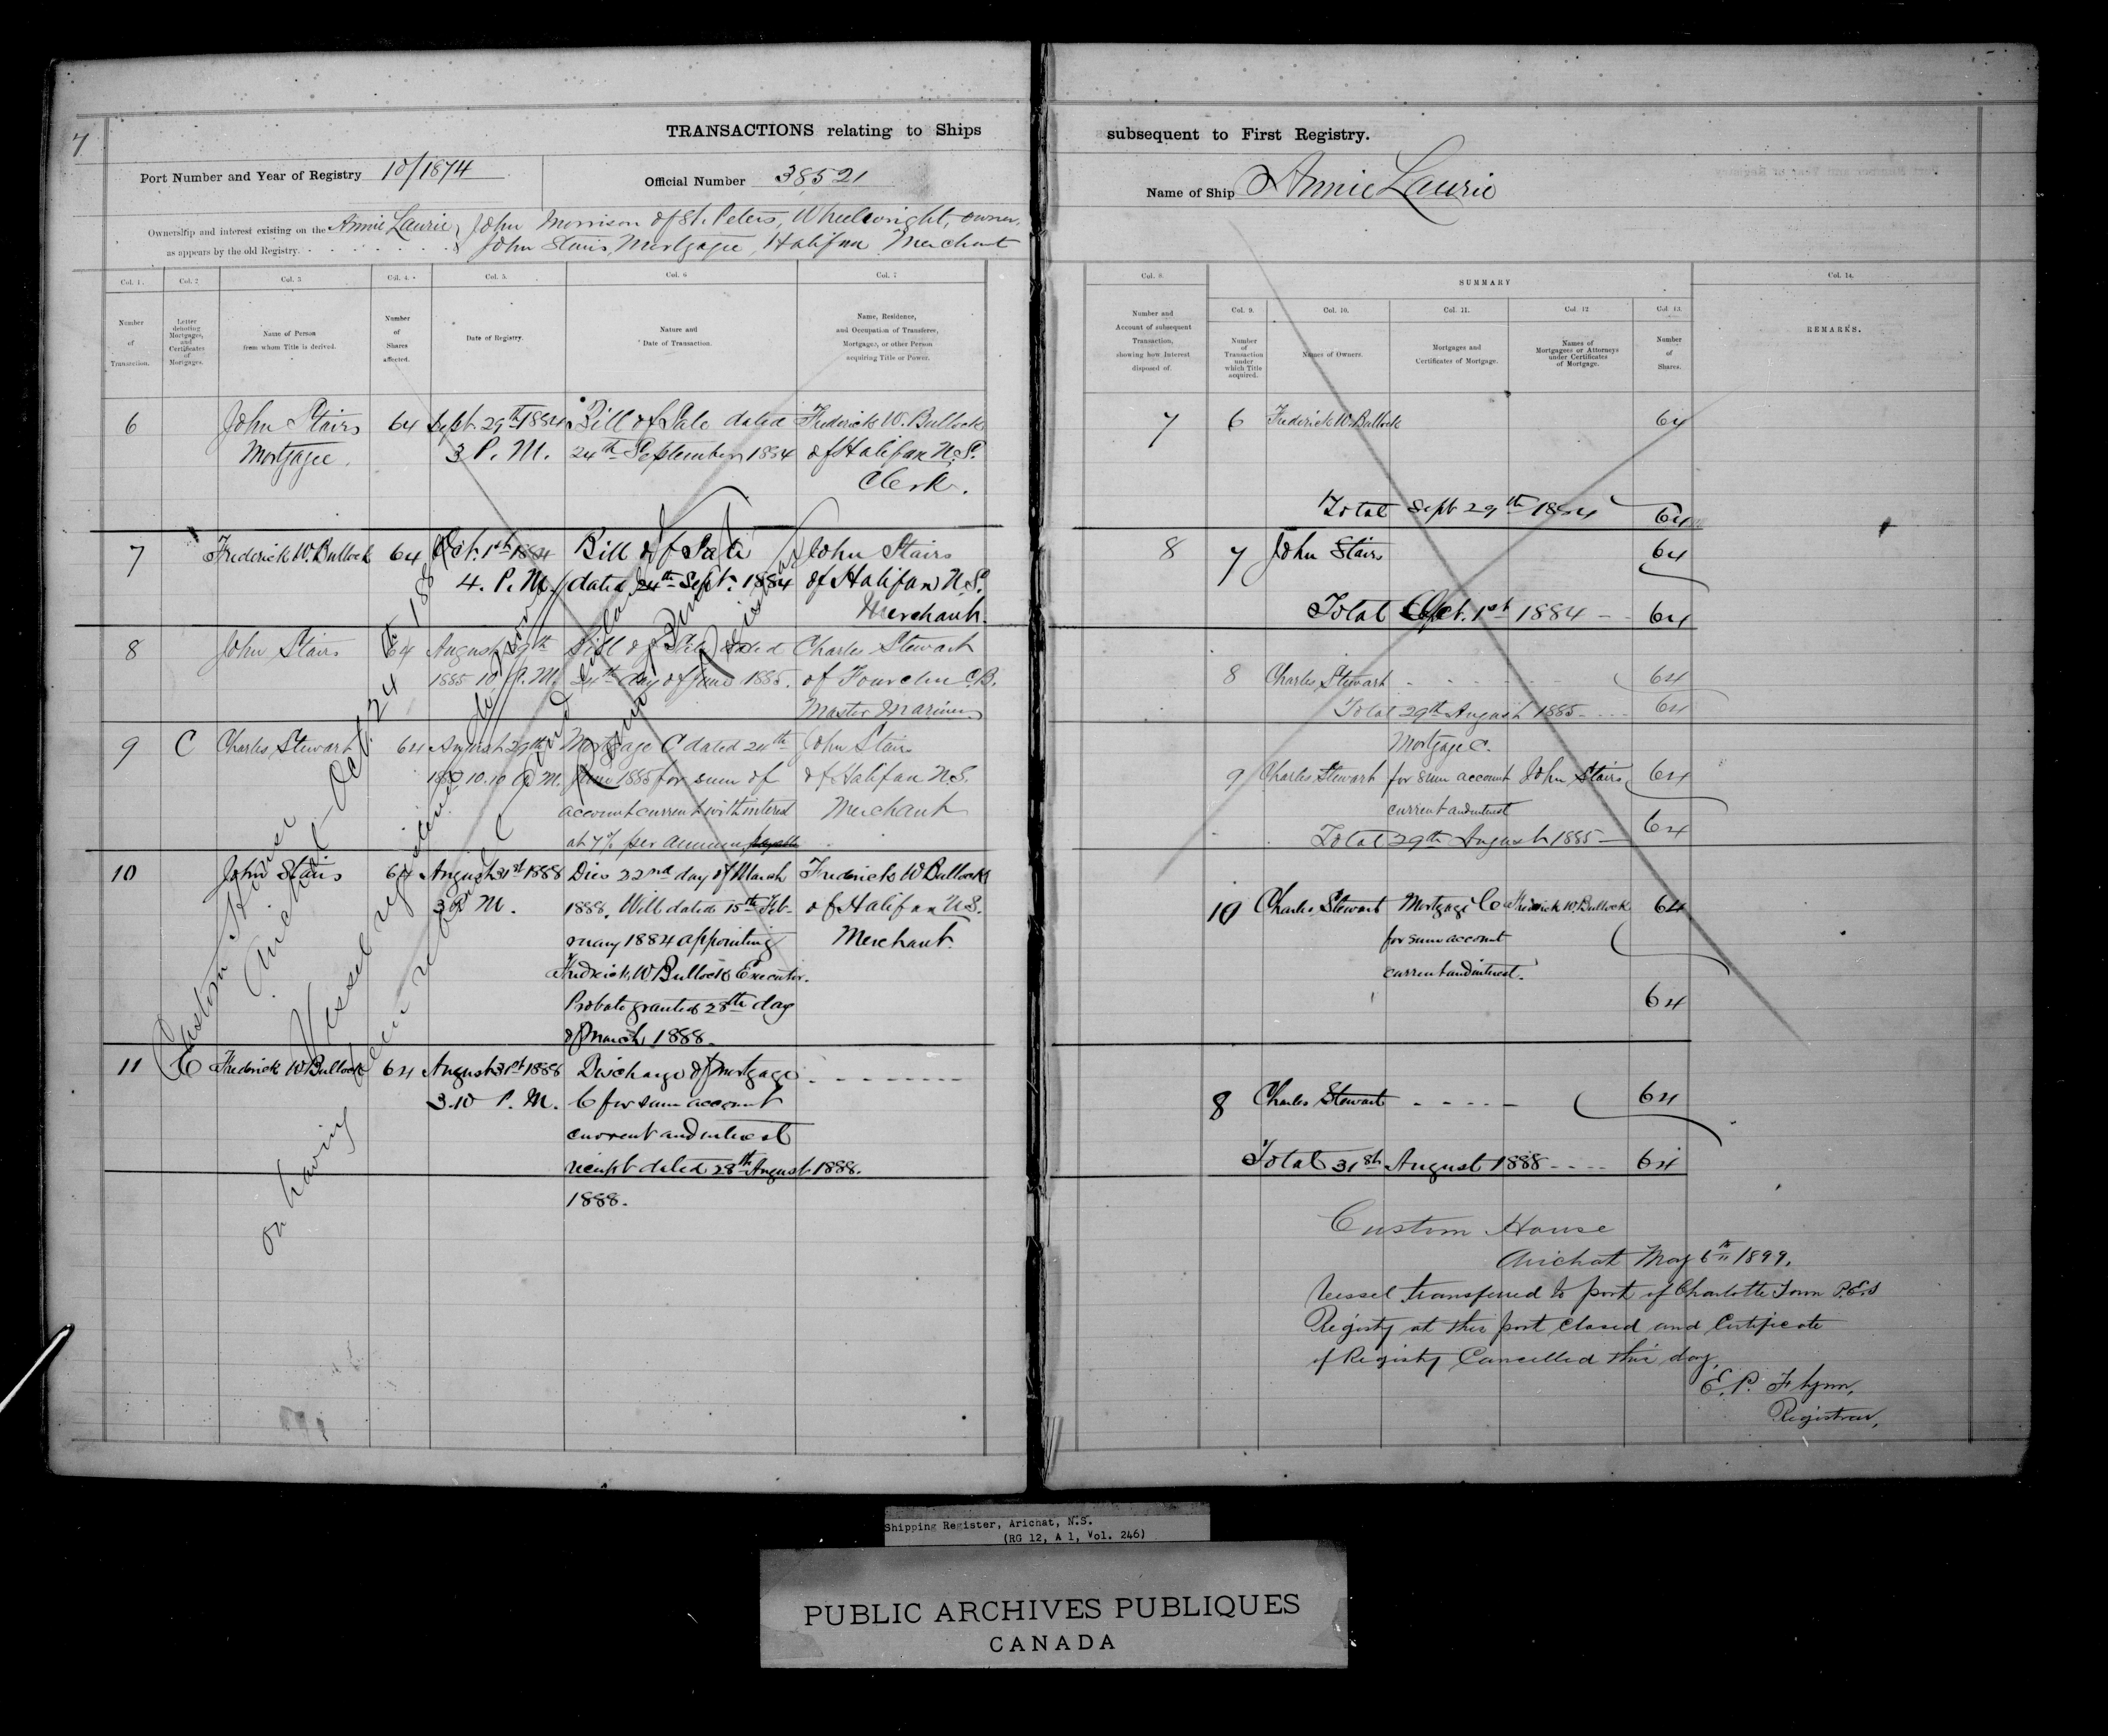 7
TRANSACTIONS relating to Ships
Port Number and Year of Registry 10/1874
Official Number 38521
Ownership and interest existing on the Annie Laurie, John Morrison of St. Peters, Wheelwright, owner.
as appears by the old Registry. John Stairs, Mortgagee, Halifax Merchant
Col. 1. Col. 2 Col. 3 Col. 4. Col. 5. Col. 6 Col. 7
Number of Transaction.
Letter denoting Mortgages, and Certificates of Mortgages.
Name of Person from whom Title is derived.
Number of Shares affected.
Date of Registry.
Nature and Date of Transaction.
Name, Residence, and Occupation of Transferee, Mortgagee, or other Person acquiring Title or Power.
6 John Stairs 64 Sept. 29th 1884 Bill of Sale dated Frederick W. Bullock
Mortgagee. 3 P. M. 24th September 1884 of Halifax N.S.
Clerk.
7 Frederick W. Bullock 64 Oct. 1st 1884 Bill of Sale John Stairs
4. P. M. dated 24th Sept. 1884 of Halifax N.S.
Merchant.
8 John Stairs 64 August 29th Bill of Sale dated Charles Stewart
1885 10 A. M. 24th day of June 1885. of Fourchu C.B.
Master Mariner
9 C Charles Stewart 64 August 29th Mortgage C dated 24th John Stairs
1885 10.10 A M. June 1885 for sum of of Halifax N.S.
account current with interest Merchant
at 7% per annum
10 John Stairs 64 August 31st 1888 Dies 22nd day of March Frederick W Bullock
3 P. M. 1888. Will dated 15th Feb- of Halifax N.S.
ruary 1884 appointing Merchant.
Fredrick W. Bullock Executor.
Probate granted 28th day
of March 1888.
11 C Frederick W Bullock 64 August 31st 1888 Discharge of Mortgage
3.10 P. M. C for sum account
current and interest
receipt dated 28th August 1888.
1888.
Custom House
Arichat Oct. 24th 188
Vessel
on having been
Registrar
subsequent to First Registry.
Name of Ship Annie Laurie
Col. 8.
Number and Account of subsequent Transaction, showing how Interest disposed of.
SUMMARY
Col. 9. Col. 10. Col. 11. Col. 12 Col. 13 Col. 14.
Number of Transaction under which Title acquired.
Names of Owners.
Mortgages and Certificates of Mortgage.
Names of Mortgagees or Attorneys under Certificates of Mortgage.
Number of Shares.
REMARKS.
7 6 Frederick W. Bullock 64
Total Sept 29th 1884 64
8 7 John Stairs 64
Total Oct. 1st 1884 64
8 Charles Stewart 64
Total 29th August 1885 64
Mortgage C.
9 Charles Stewart for sum account John Stairs 64
current and interest
Total 29th August 1885 64
10 Charles Stewart Mortgage C Frederick W. Bullock 64
for sum account
current and interest.
64
8 Charles Stewart 64
Total 31st August 1888 64
Custom House
Arichat May 6th 1899.
Vessel transferred to port of Charlotte Town P.E.I
Registry at this port closed and Certificate
of Registry Cancelled this day.
E. P. Flynn,
Registrar,
Shipping Register, Arichat, N.S.
(RG 12, A 1, Vol. 246)
PUBLIC ARCHIVES PUBLIQUES
CANADA